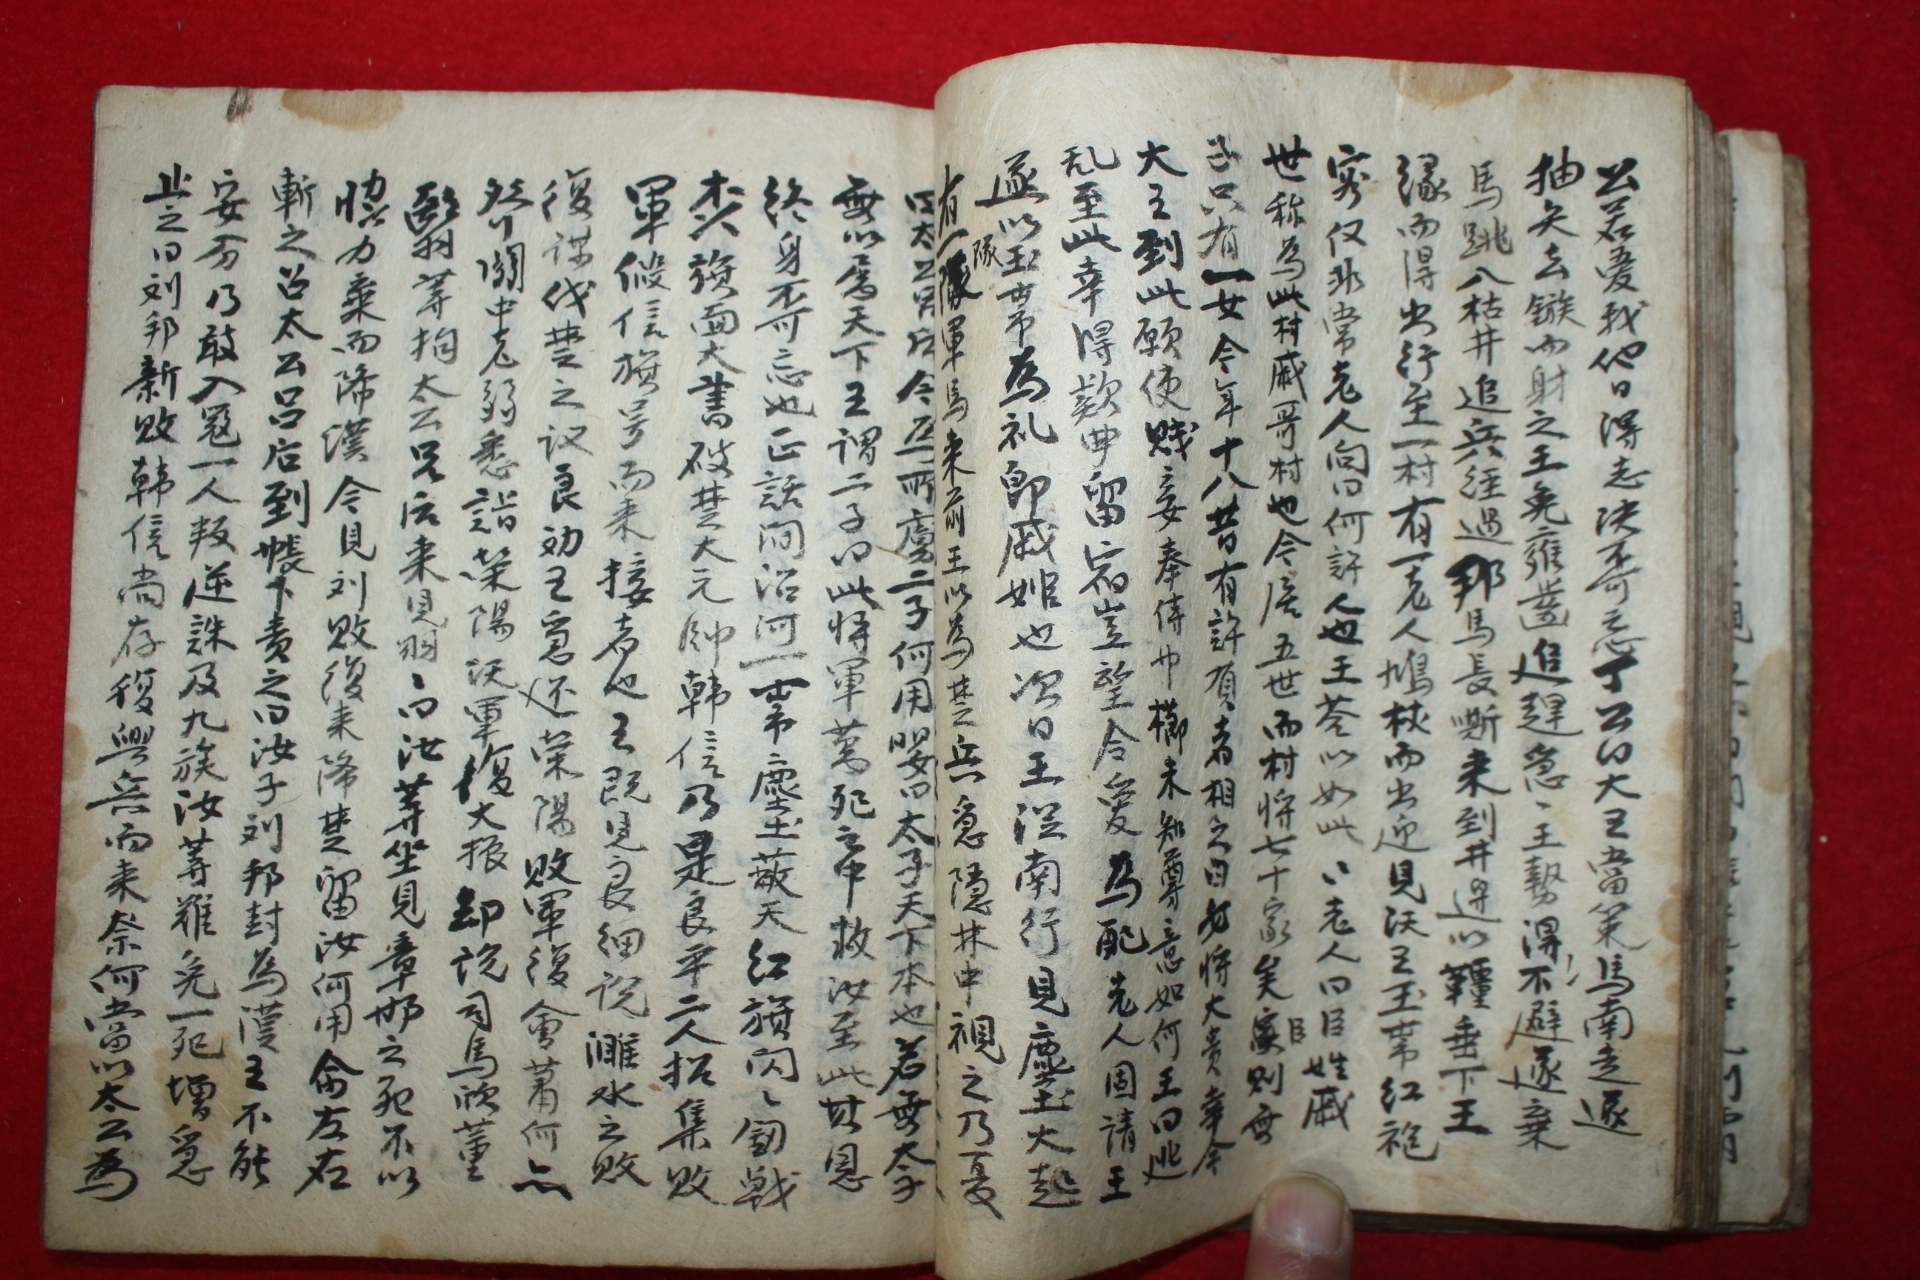 公若愛我他日得志決不可忘丁公曰大王當策馬南走遂
抽矢去鏃而射之王免雍齒追趕急〻王勢得不避遂棄
馬跳入枯井追兵經過邦馬長嘶來到井邊以韁垂下王
緣而得出行至一村有一老人鳩杖而出迎見沃王玉帶紅袍
容仅非常老人向曰何許人也王答以如此〻〻老人曰臣姓戚
世称為此村戚哥村也今居五世而村將七十家矣臣家則無
子只有一女今年十八昔有許負者相之曰必將大貴幸今
大王到此願使賤妾奉侍巾櫛未知尊意如何王曰逃
乱至此幸得款曲留宿豈望令愛為配老人固請王
遂以玉帶為礼即戚姬也次日王從南行見塵土大起
有一隊軍馬來前王以為楚兵急隱林中視之乃夏
曰太公呂后今在所虜二子何用嬰曰太子天下本也若無太子
無以為天下王謂二子曰此將軍萬死之中救汝至此其恩
終身不可忘也正話間沿河一帶塵土蔽天紅旗閃〻劍戟
森〻旗面大書破楚大元帥韓信乃是良平二人招集敗
軍假信旗号而來接者也王既見良細說濉水之敗
復謀伐楚之议良劝王急还荣陽敗軍復會蕭何亦
發關中老弱悉詣荣陽沃軍復大振却說司馬欣董
翳等拘太公呂后來見羽〻曰汝等坐見章邯之死不以
恊力棄而降漢今見刘敗復來降楚留汝何用命左右
斬之召太公呂后到帳下責之曰汝子刘邦封為漢王不能
安分乃敢入寇一人叛逆誅及九族汝等难免一死增急
止之曰刘邦新敗韓信尚存復興兵而來奈何當以太公為